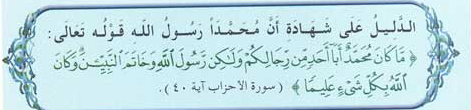 الدَّلِيلُ عَلَى شَهَادَةِ أَنَّ مُحَمَّدَاً رَسُولُ اللهِ قَوْلُهُ تَعَالَى :
﴿ مَّا كَانَ مُحَمَّدٌ أَبَآ أَحَدٍ مِّن رِّجَالِكُمْ وَلَٰكِن رَّسُولَ ٱللَّهِ وَخَاتَمَ ٱلنَّبِيِّـۧنَ ۗ وَكَانَ
ٱللَّهُ بِكُلِّ شَىْءٍ عَلِيمًا ﴾ (سورة الأحزاب آية ٤٠).